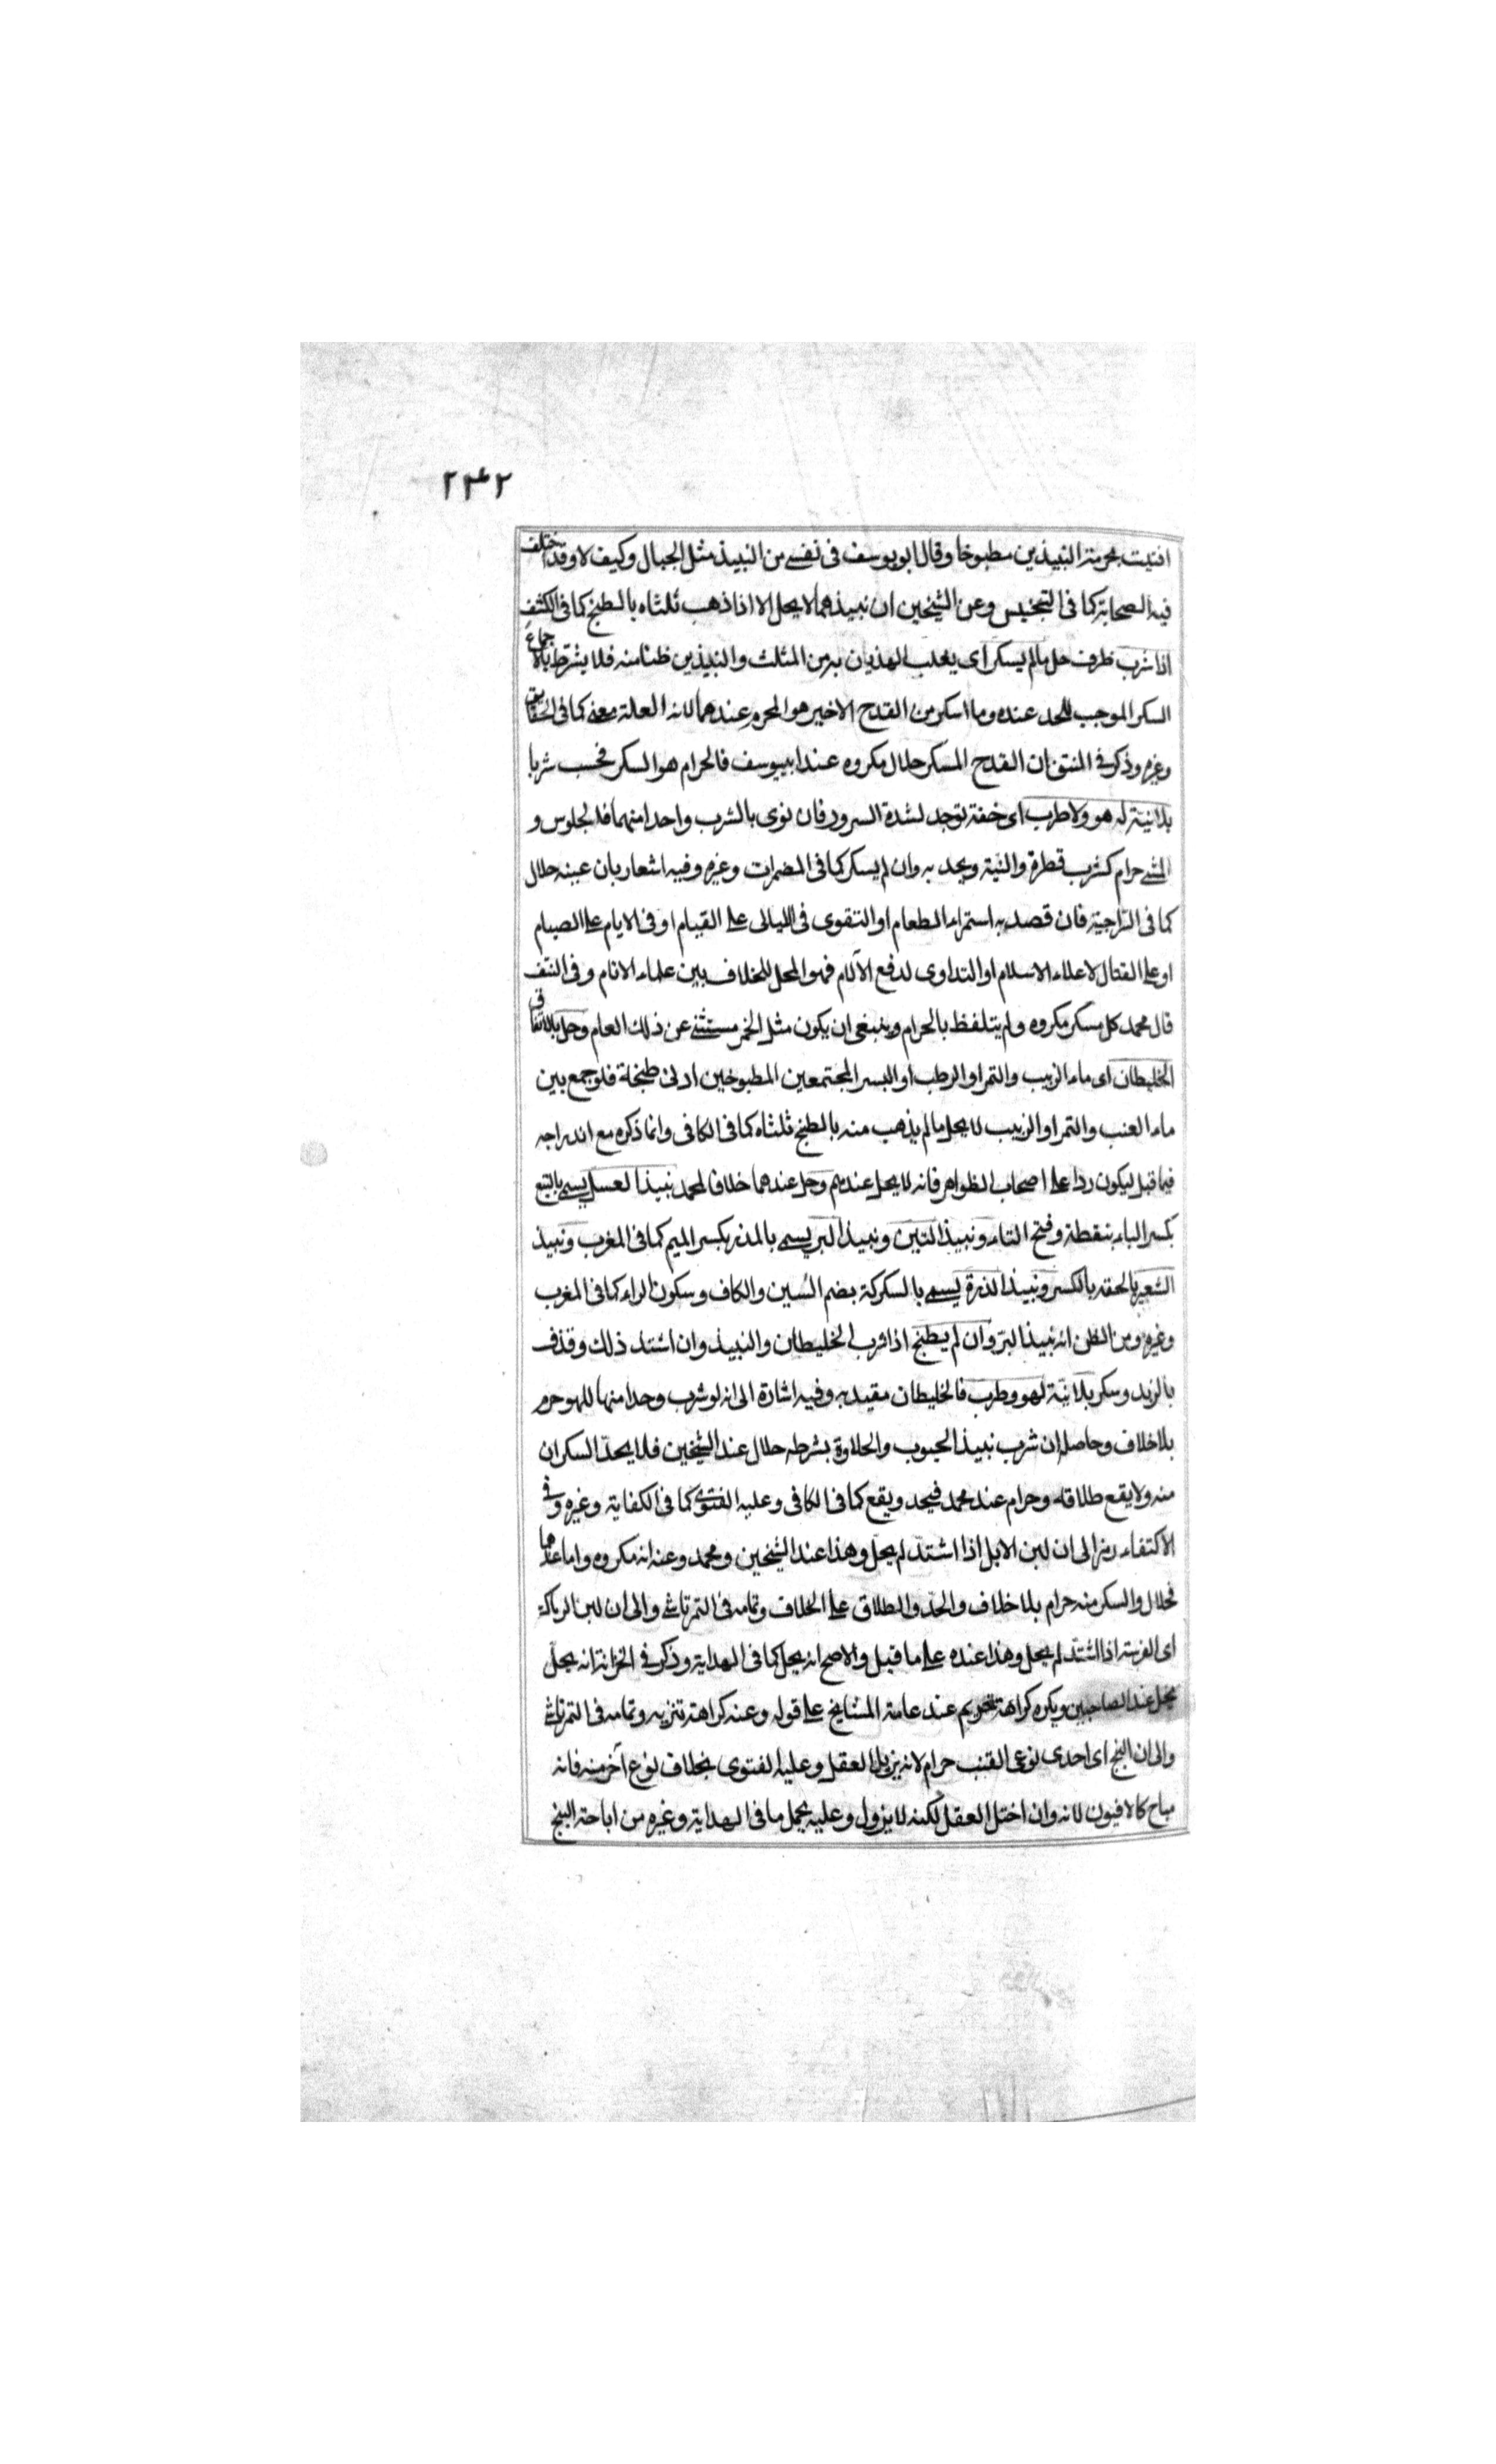 ٢٤٢
افتيت بحرمة النبيذين مطبوخا وقال ابو يوسف في نفسي من النبيذ مثل الجبال وكيف لا وقد اختلف
فيه الصحابة كما في التجنيس وعن الشيخين ان نبيذهما لا يحل الا اذا ذهب ثلثاه بالطبخ كما في الكشف
اذا شرب ظرف حل ما لم يسكر اى يغلب الهذيان به من المثلث والنبيذين ظنا منه فلا يشترط بالاجماع
السكر الموجب للحد عنده وما اسكر من القدح الاخير هو المحرم عندهما لانه العلة معنى كما في الحقايق
وغيره وذكر في المنتقى ان القدح المسكر حلال مكروه عند ابيوسف فالحرام هو السكر فحسب شربا
بلا نية لهو ولا طرب اى خفة توجد لشدة السرور فان نوى بالشرب واحدا منهما فالجلوس و
المشى حرام كشرب قطرة والنية ويحد به وان لم يسكر كما في المضمرات وغيره وفيه اشعار بان عينه حلال
كما في السراجية فان قصد به استمراء الطعام او التقوى في الليالى على القيام او في الايام على الصيام
او على القتال لاعلاء الاسلام او التداوى لدفع الآلام فهو المحل للخلاف بين علماء الانام وفي النتف
قال محمد كل مسكر مكروه ولم يتلفظ بالحرام وينبغى ان يكون مثل الخمر مستثنى عن ذلك العام وحل بالاتفاق
الخليطان اى ماء الزبيب والتمر او الرطب او البسر المجتمعين المطبوخين ادنى طبخة فلو جمع بين
ماء العنب والتمر او الزبيب لا يحل ما لم يذهب منه بالطبخ ثلثاه كما في الكافى وانما ذكره مع اندراجه
فيما قبل ليكون ردا على اصحاب الظواهر فانه لا يحل عندهم وحل عندهما خلافا لمحمد نبيذ العسل يسمى بالبتع
بكسر الباء بنقطة وفتح التاء ونبيذ التين ونبيذ البر يسمى بالمذر بكسر الميم كما في المغرب ونبيذ
الشعير بالحقة بالكسر ونبيذ الذرة يسمى بالسكركة بضم السين والكاف وسكون الراء كما في المغرب
وغيره ومن الظن انه نبيذ البر وان لم يطبخ اذا شرب الخليطان والنبيذ وان اشتد ذلك وقذف
بالزبد وسكر بلا نية لهو وطرب فالخليطان مقيد به وفيه اشارة الى انه لو شرب وحدا منها للهو حرم
بلا خلاف وحاصله ان شرب نبيذ الحبوب والحلاوة بشرطه حلال عند الشيخين فلا يحد السكران
منه ولا يقع طلاقه وحرام عند محمد فيحد ويقع كما في الكافى وعليه الفتوى كما في الكفاية وغيره وفى
الاكتفاء رمز الى ان لبن الابل اذا اشتد لم يحل وهذا عند الشيخين ومحمد وعنه انه مكروه واما عندهما
فحلال والسكر منه حرام بلا خلاف والحد والطلاق على الخلاف وتمامه في التمرتاشى والى ان لبن الرماكة
اى الفرسة اذا اشتد لم يحل وهذا عنده على ما قيل والاصح انه يحل كما في الهداية وذكر في الخزانة انه يحل
يحل عند الصاحبين ويكره كراهة تحريم عند عامة المشايخ على قوله وعنه كراهة تنزيه وتمامه في التمرتاشى
والى ان البنج اى احدى نوعى القنب حرام لانه يزيل العقل وعليه الفتوى بخلاف نوع آخر منه فانه
مباح كالافيون لانه وان اختل العقل لكنه لا يزول وعليه يحمل ما في الهداية وغيره من اباحة البنج